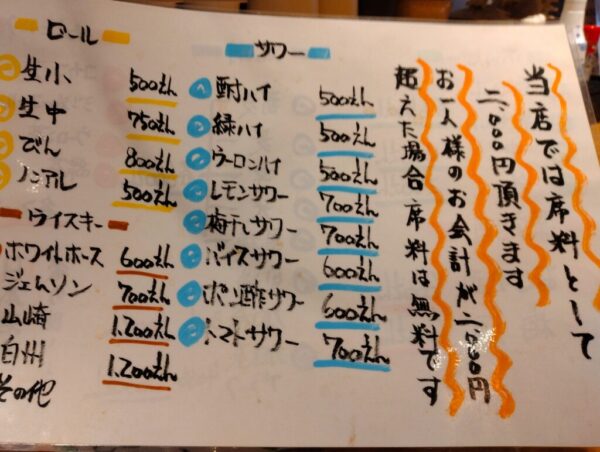 ビール
生小 500えん
生中 750えん
びん 800えん
ノンアル 500えん
ウイスキー
ホワイトホース 600えん
ジェムソン 700えん
山崎 1.200えん
白州 1.200えん
その他
サワー
酎ハイ 500えん
緑ハイ 500えん
ウーロンハイ 500えん
レモンサワー 700えん
梅干しサワー 700えん
バイスサワー 600えん
ポン酢サワー 600えん
トマトサワー 700えん
当店では席料として
二、〇〇〇円頂きます
お一人様のお会計が二、〇〇〇円
超えた場合席料は無料です